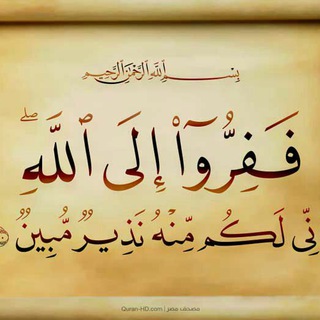 بِسْمِ ٱللَّهِ ٱلرَّحْمَٰنِ ٱلرَّحِيمِ
فَفِرُّوٓا۟ إِلَى ٱللَّهِ ۖ
نِّى لَكُم مِّنْهُ نَذِيرٌ مُّبِينٌ
Quran-HD.com |